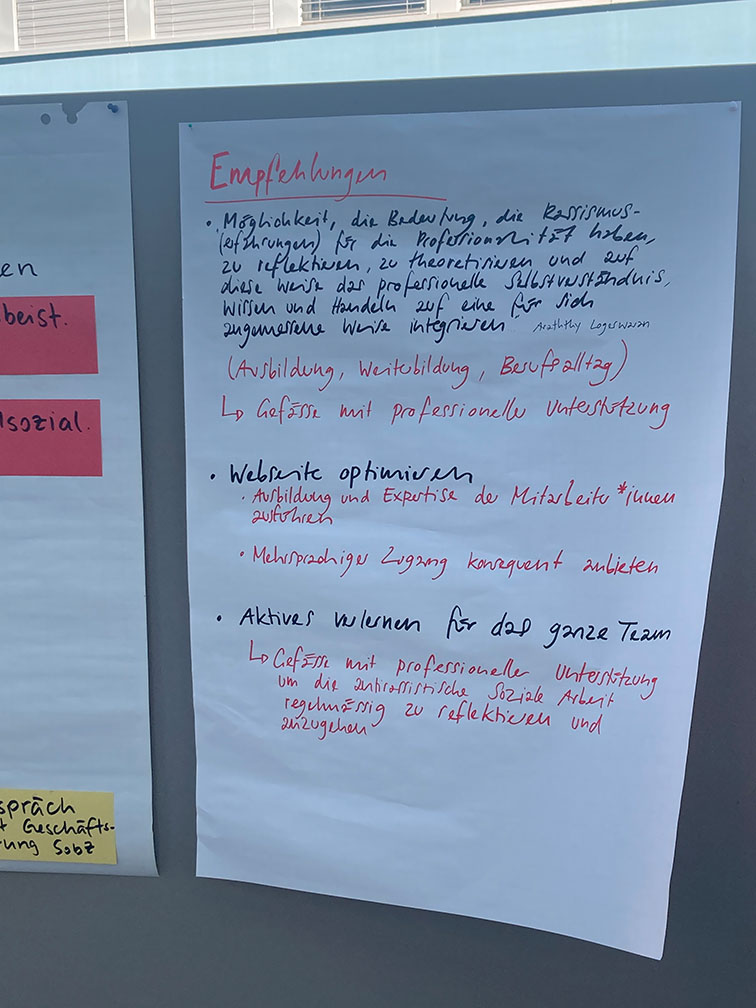 en
beist.
lsozial.
spräch
+ Geschäfts-
rung SobZ
Empfehlungen
• Möglichkeit, die Bedeutung, die Rassismus-
(erfahrungen) für die Professionalität haben,
zu reflektieren, zu theoretisieren und auf
diese Weise das professionelle Selbstverständnis,
Wissen und Handeln auf eine für sich
angemessene Weise integrieren. Araththy Logeswaran
(Ausbildung, Weiterbildung, Berufsalltag)
↳ Gefässe mit professioneller Unterstützung
• Webseite optimieren
• Ausbildung und Expertise der Mitarbeiter*innen
ausführen
• Mehrsprachiger Zugang konsequent anbieten
• Aktives verlernen für das ganze Team
↳ Gefässe mit professioneller Unterstützung
um die antirassistische Soziale Arbeit
regelmässig zu reflektieren und
anzugehen